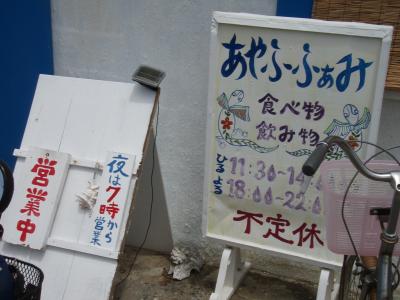 あやふーふぁみ
食べ物
飲み物
ひる 11:30~14:00
よる 18:00~22:00
不定休
夜は7時から
営業
営業中